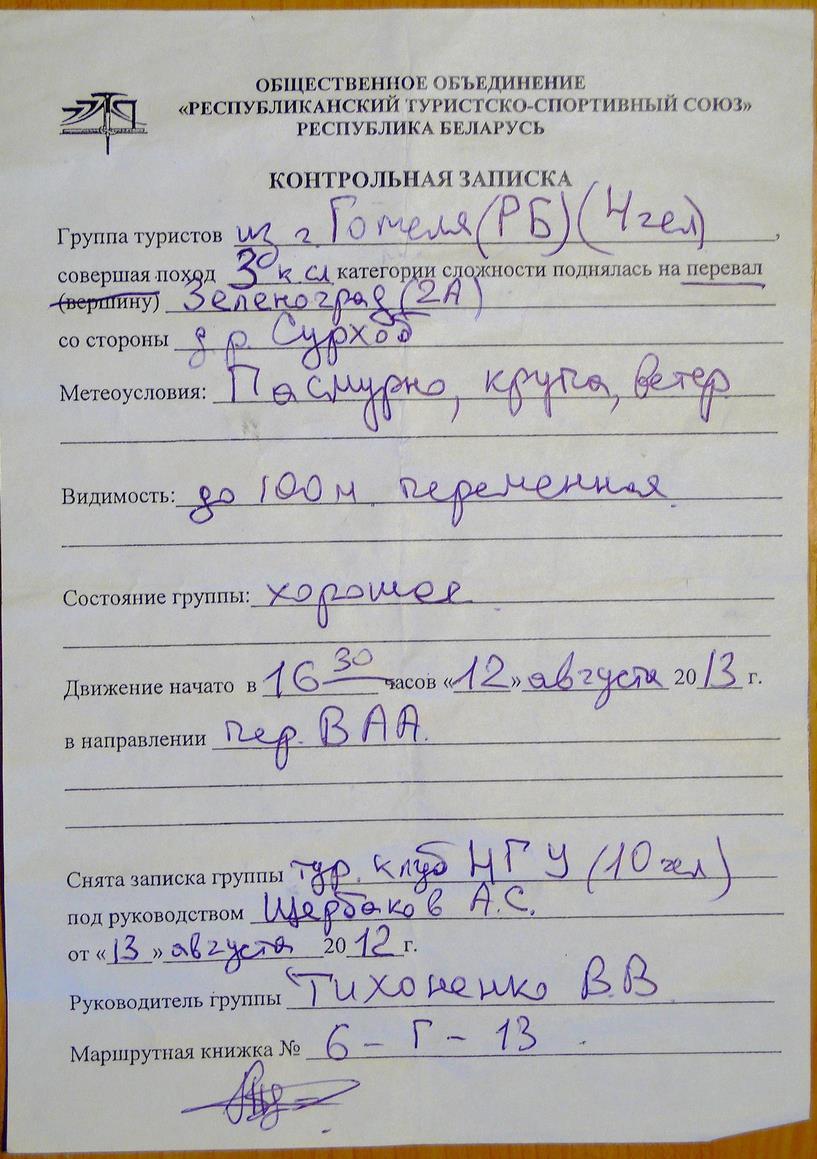 ОБЩЕСТВЕННОЕ ОБЪЕДИНЕНИЕ
«РЕСПУБЛИКАНСКИЙ ТУРИСТСКО-СПОРТИВНЫЙ СОЮЗ»
РЕСПУБЛИКА БЕЛАРУСЬ
КОНТРОЛЬНАЯ ЗАПИСКА
Группа туристов из г. Гомеля (РБ) (4 чел),
совершая поход 3й к сл категории сложности поднялась на перевал
(вершину) Зеленоград (2А)
со стороны д.р. Сурхоб
Метеоусловия: Пасмурно, крупа, ветер
Видимость: до 100м. переменная.
Состояние группы: хорошая
Движение начато в 16 30 часов «12» августа 2013 г.
в направлении пер. ВАА.
Снята записка группы тур. клуб НГУ (10 чел)
под руководством Щербаков А.С.
от «13» августа 2012 г.
Руководитель группы Тихоненко В.В
Маршрутная книжка № 6 – Г – 13